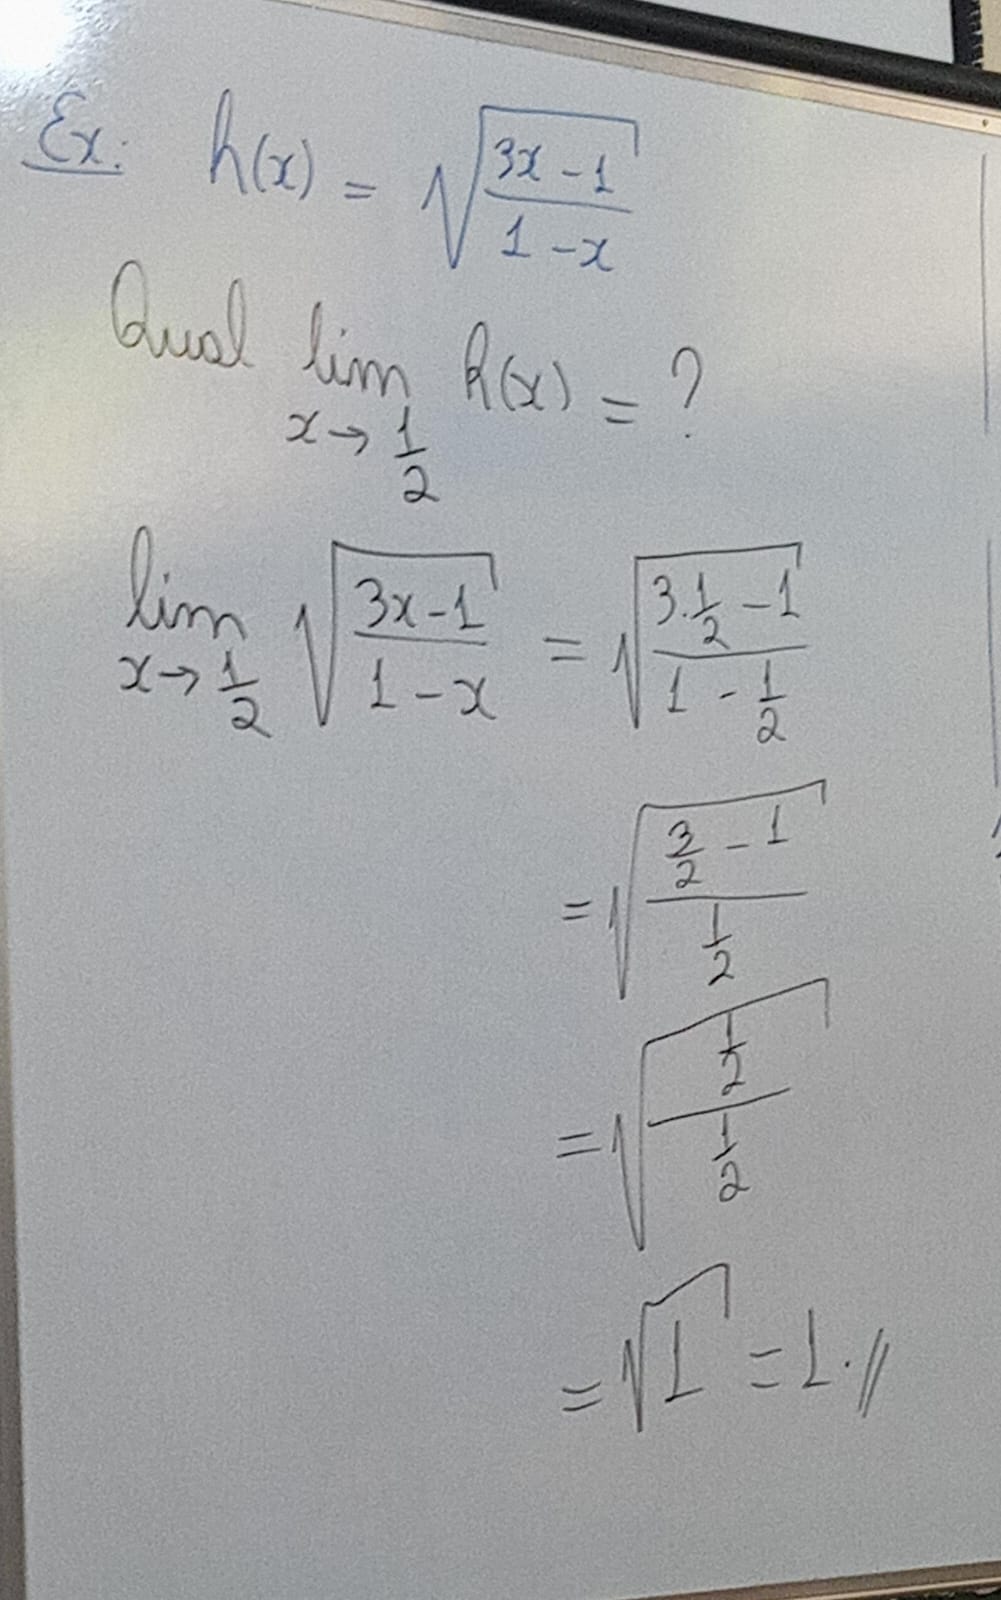 Ex: h(x) = √((3x - 1)/(1 - x))
Qual lim x→1/2 h(x) = ?
lim x→1/2 √((3x - 1)/(1 - x)) = √((3·1/2 - 1)/(1 - 1/2))
= √((3/2 - 1)/(1/2))
= √((1/2)/(1/2))
= √1 = 1.//